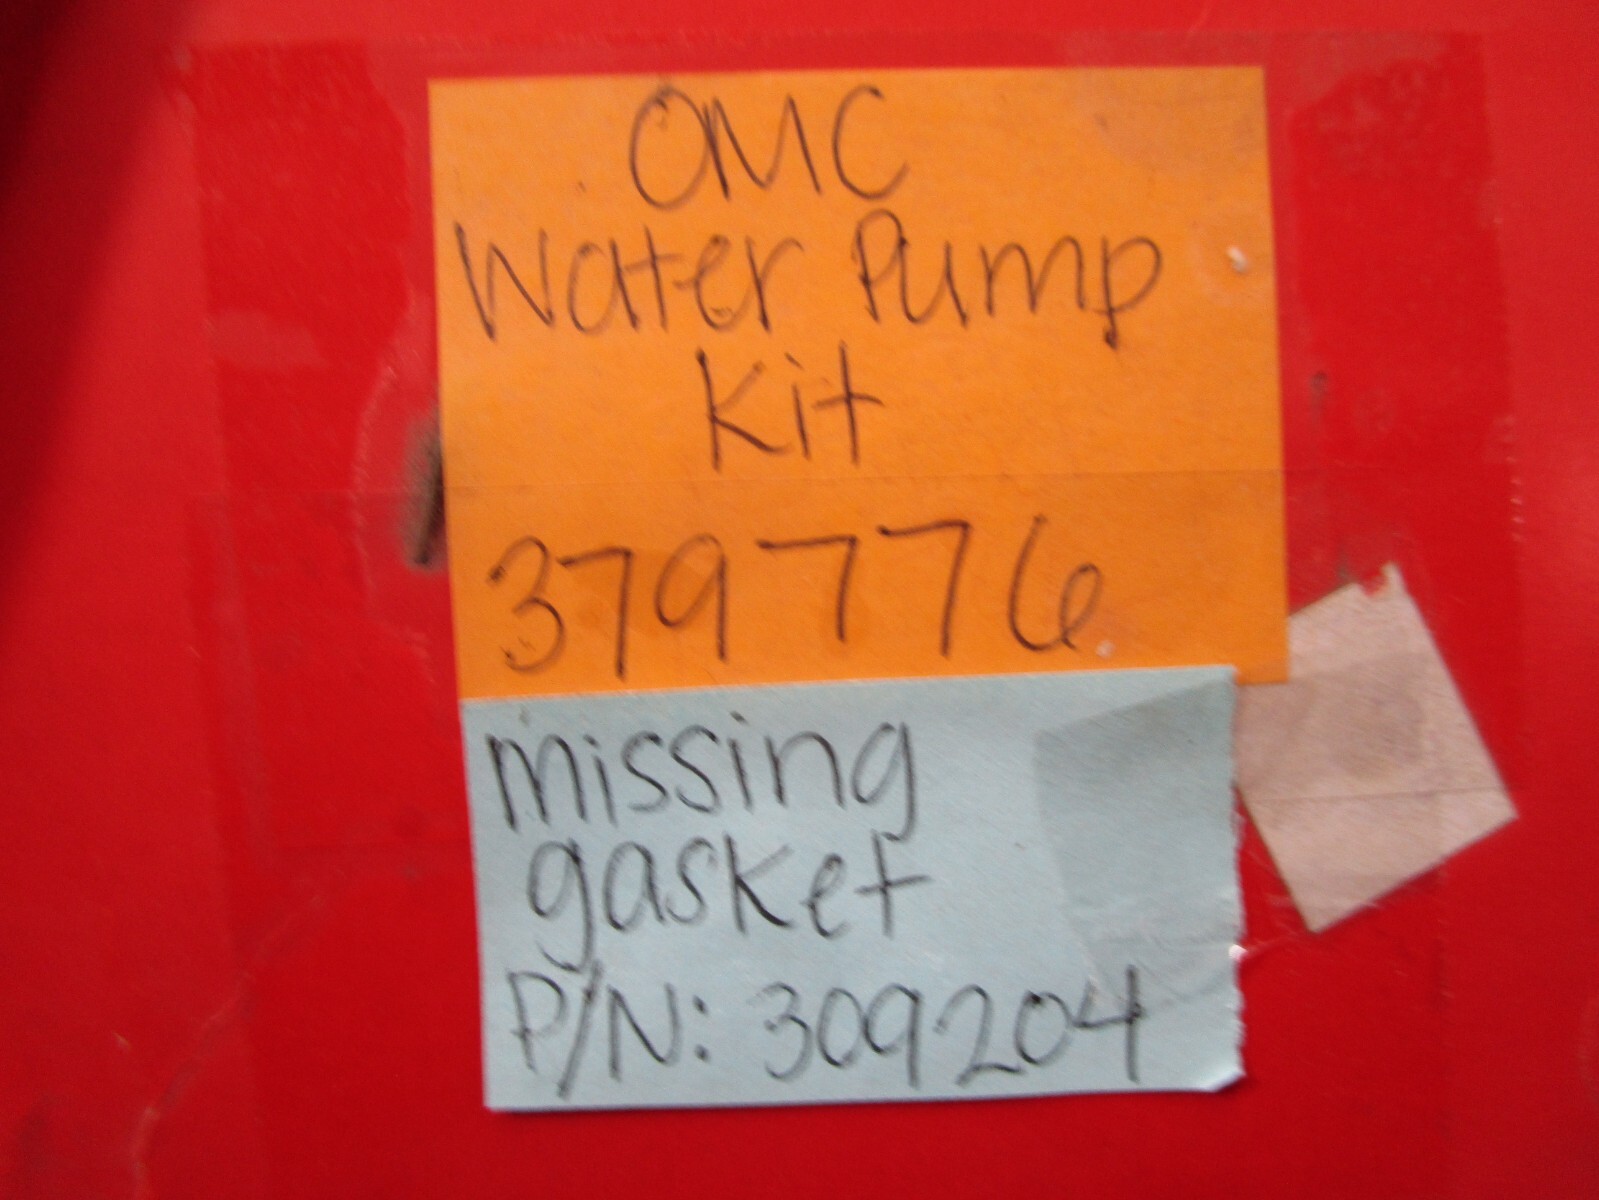 OMC
Water Pump
Kit
379776
missing
gasket
P/N: 309204